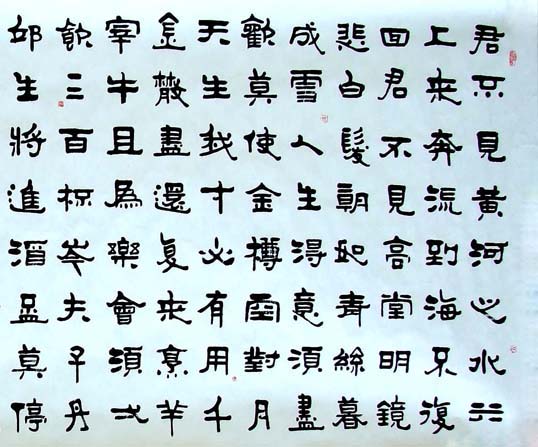 君不見黃河之水天
上來奔流到海不復
回君不見高堂明鏡
悲白髮朝如青絲暮
成雪人生得意須盡
歡莫使金樽空對月
天生我才必有用千
金散盡還复來烹羊
宰牛且為樂會須弌
飲三百杯岑夫子丹
邱生將進酒盃莫停